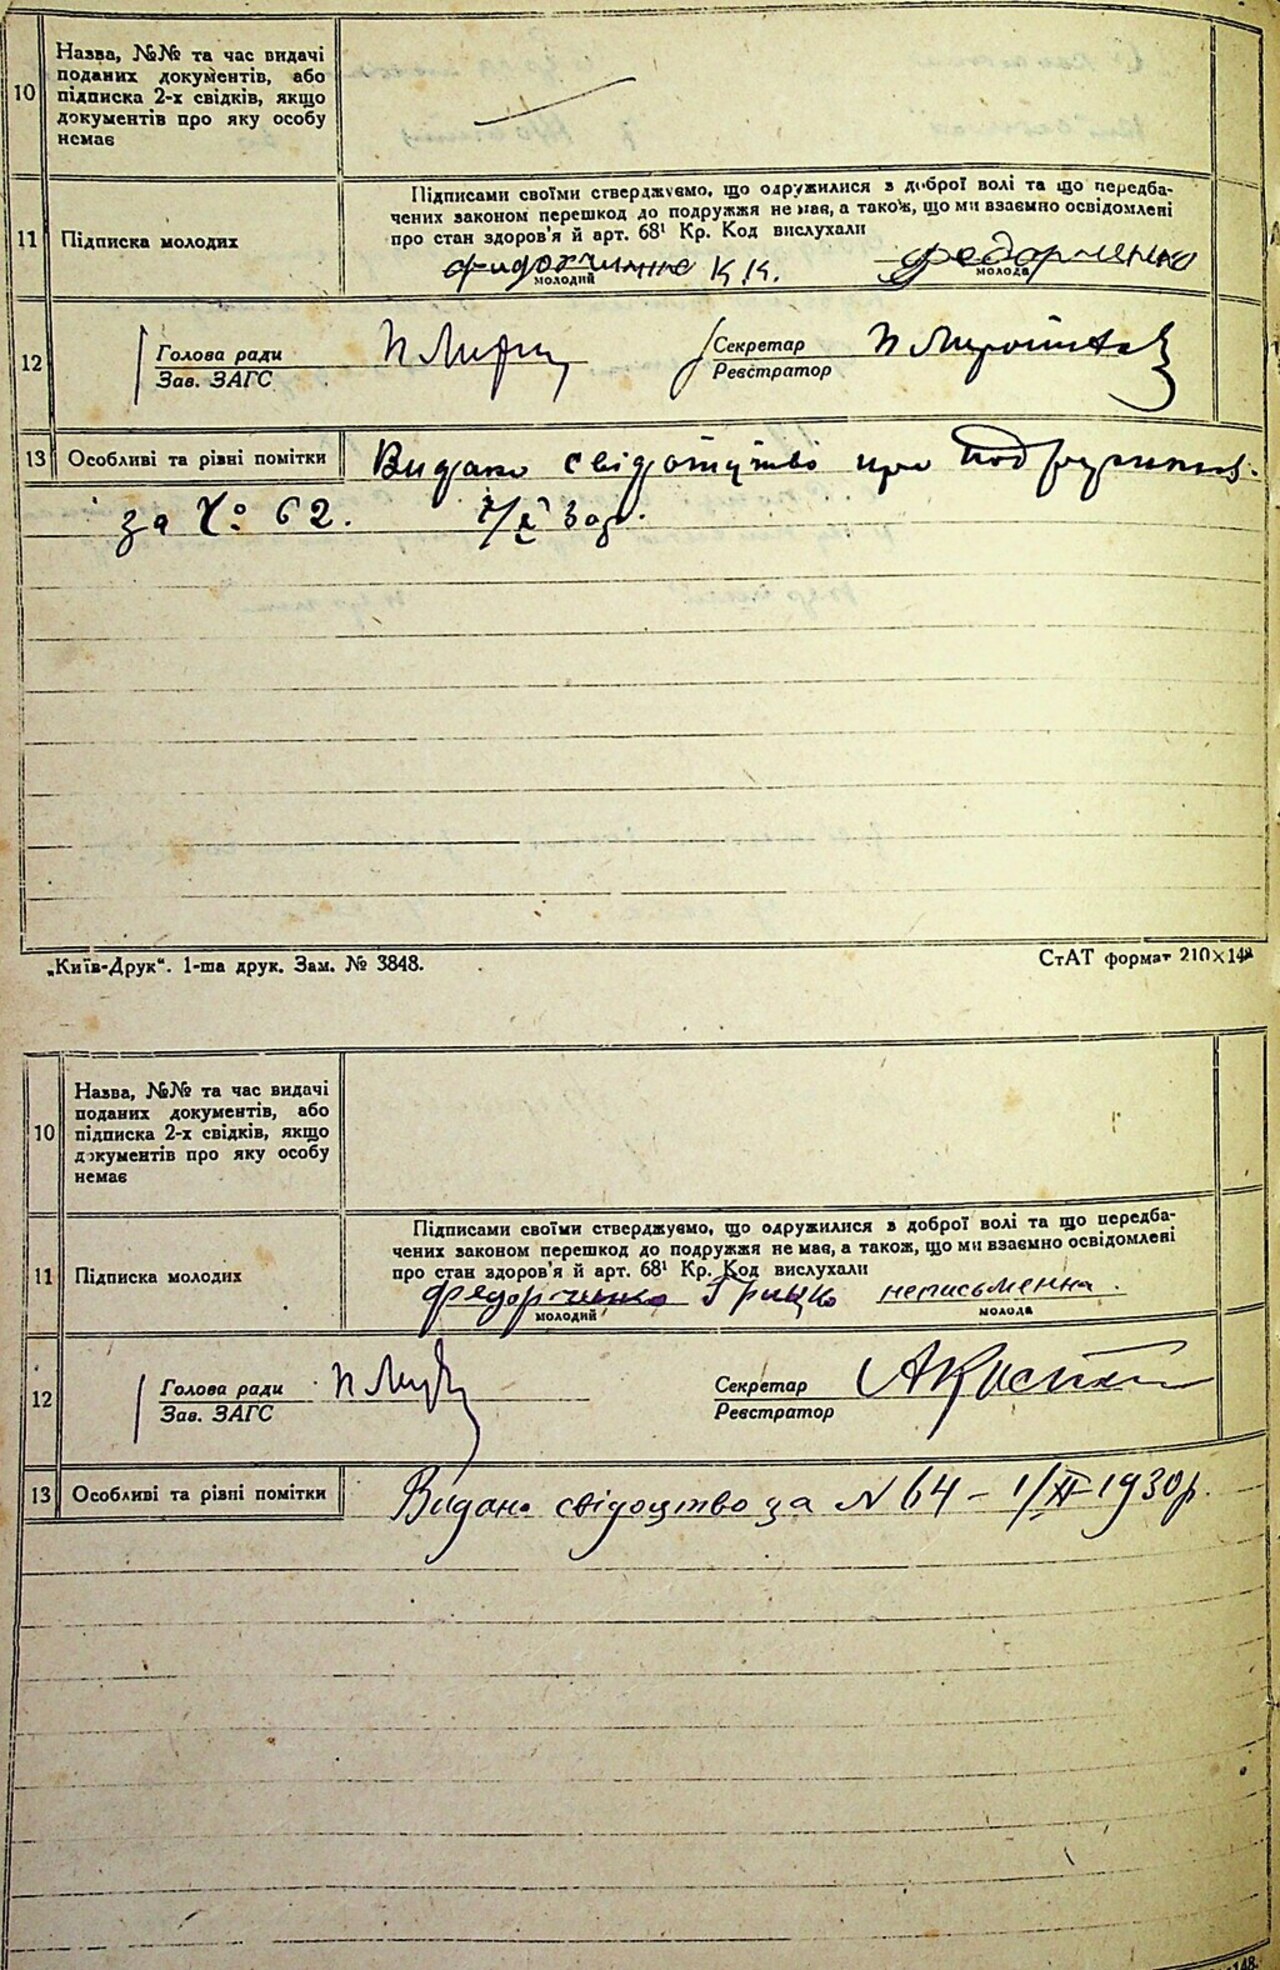 10
Назва, №№ та час видачі
поданих документів, або
підписка 2-х свідків, якщо
документів про яку особу
немає
11
Підписка молодих
Підписами своїми стверджуємо, що одружилися з доброї волі та що передба-
чених законом перешкод до подружжя не має, а також, що ми взаємно освідомлені
про стан здоров'я й арт. 68¹ Кр. Код вислухали
К.К.
молодий
Федорченко
молода
12
Голова ради
Зав. ЗАГС
Секретар
Реєстратор
13
Особливі та рівні помітки
Видано про
за № 62.
„Київ-Друк“. 1-ша друк. Зам. № 3848.
СтАТ формат 210×148
10
Назва, №№ та час видачі
поданих документів, або
підписка 2-х свідків, якщо
документів про яку особу
немає
11
Підписка молодих
Підписами своїми стверджуємо, що одружилися з доброї волі та що передба-
чених законом перешкод до подружжя не має, а також, що ми взаємно освідомлені
про стан здоров'я й арт. 68¹ Кр. Код вислухали
Федорченко Грицко неписьменна.
молодий
молода
12
Голова ради
Зав. ЗАГС
Секретар
Реєстратор
13
Особливі та рівні помітки
Видано свідоцтво за N 64 – 1/XI-1930р.
148.